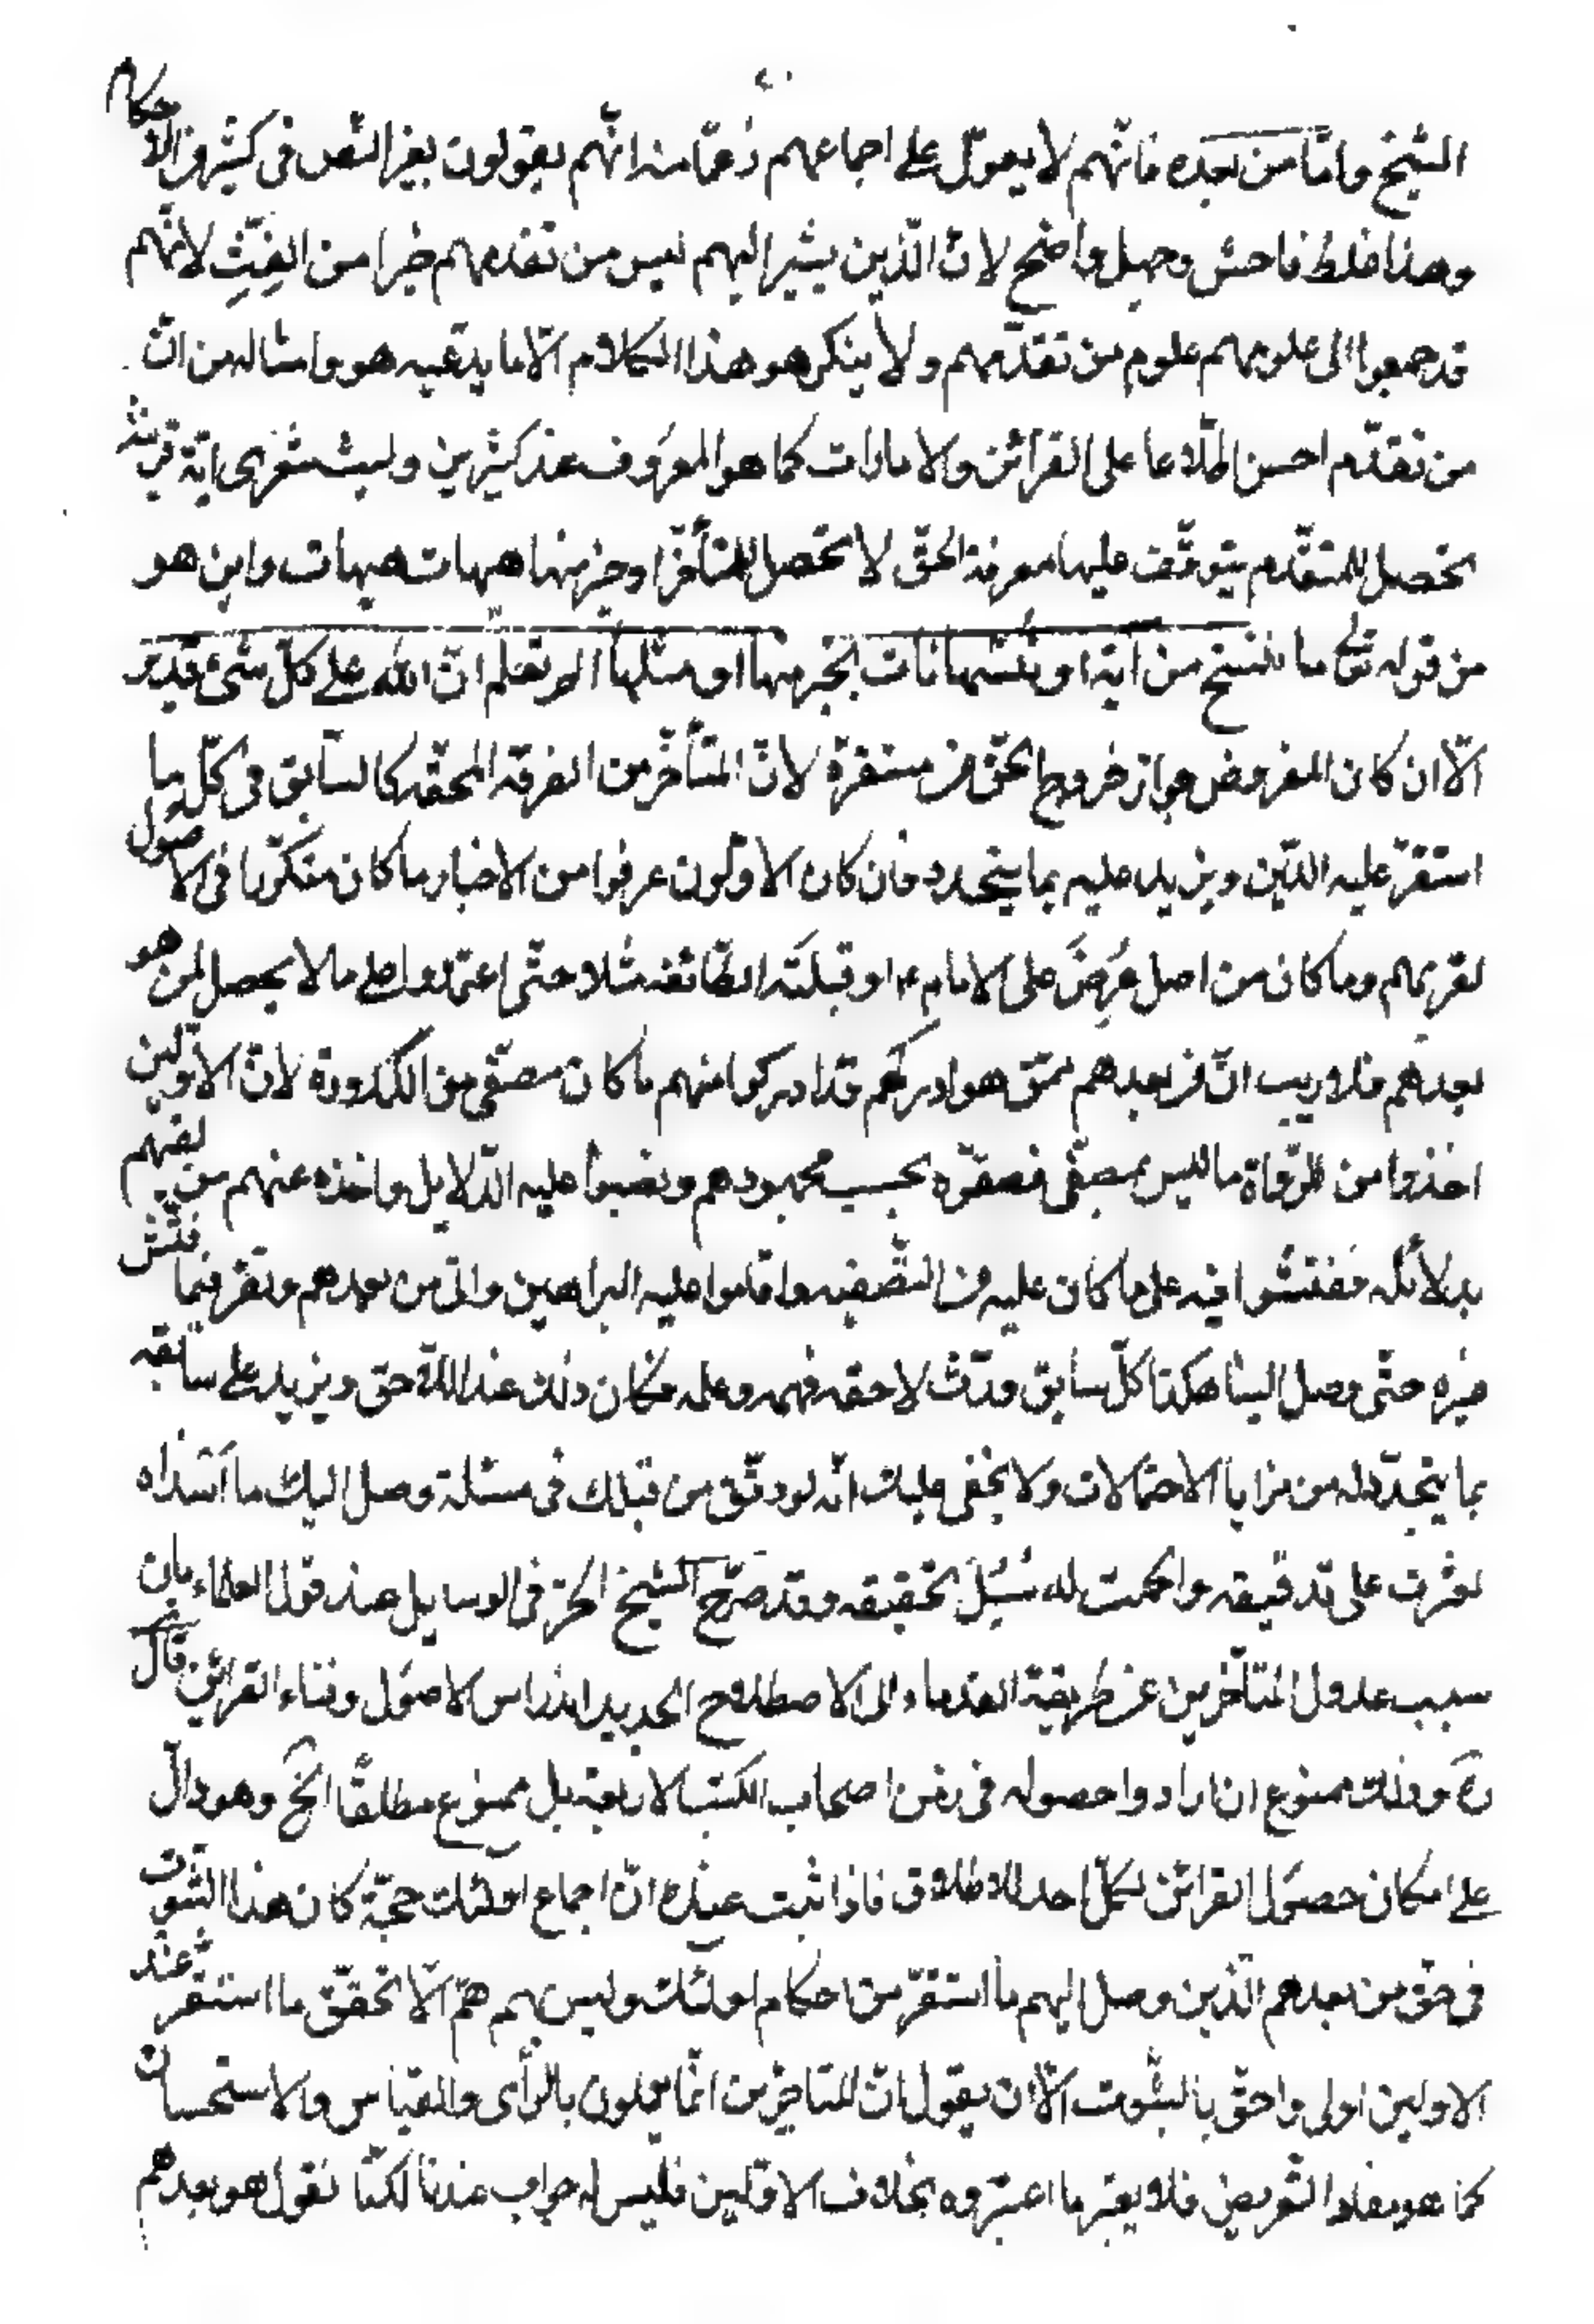 ٤٠
الشيخ واما من بعده فانهم لا يعول على اجماعهم زعما منه انهم يقولون بغير النص فى كثير من الاحكام
وهذا غلط فاحش وجهل واضح لان الذين يشير اليهم ليس من تقدمهم خيرا من الفِيث لانهم
قد جمعوا الى علومهم علوم من تقدمهم ولا ينكر هو هذا الكلام الا ما يدعيه هو وامثاله من ان
من تقدم احسن اطلاعا على القرائن والامارات كما هو المعروف عند كثيرين وليت شعرى اية قرينة
تحصل للمتقدم يتوقف عليها معرفة الحق لا تحصل للمتأخر او خير منها هيهات هيهات واين هو
من قوله تع ما ننسخ من آية او ننسها نات بخير منها او مثلها الم تعلم ان الله على كل شئ قدير
الا ان كان المفروض جواز خروج الحق من مستقره لان المتأخر من الفرقة المحقة كالسابق فى كل ما
استقر عليه الدين ويزيد عليه بما يتجدد فان كان الاولون عرفوا من الاخبار ما كان متكررا فى الاصول
لقربهم وما كان من اصل عُرِضَ على الامام ع او قبلته الطائفة مثلا حتى اعتمدوا على ما لا يحصل لمن هو
بعدهم فلا ريب ان من بعدهم ممن هو ادركهم قد ادركوا منهم ما كان مصفى من الكدورة لان الاولين
اخذوا من الرواة ما ليس بمصفى فصفوه بحسب مجهودهم ونصبوا عليه الدلايل واخذه عنهم من لقيهم
بدلائله ففتشوا فيه على ما كان عليه من التصفية واقاموا عليه البراهين واتى من بعدهم ونقر فيما فتش
غيره حتى وصل الينا هكذا كل سابق ورّث لاحقه فهمه وعلمه فكان ذلك عند اللاحق ويزيد على سابقه
بما يتجدد له من مزايا الاحتمالات ولا يخفى عليك انه لو دقق من قبلك فى مسئلة وصل اليك ما اسداه
لعثرت على تدقيقه واحكمت له سُبُل تحقيقه وقد صرح الشيخ الحر فى الوسايل عند قول العلماء بان
سبب عدول المتأخرين عن طريقة القدماء الى الاصطلاح الجديد اندراس الاصول وفناء القرائن قال
ره وذلك ممنوع ان ارادوا حصوله فى زمن اصحاب الكتب الاربعة بل ممنوع مطلقا الخ وهو دال
على امكان حصول القرائن لكل احد للاطلاق فاذا ثبت عنده ان اجماع اولئك حجة كان هذا الثبوت
فى حق من بعدهم الذين وصل اليهم ما استقر من احكام اولئك وليس بهم هم الا تحقق ما استقر عند
الاولين اولى واحق بالثبوت الا ان يقول ان المتاخرين انما يعملون بالرأى والقياس والاستحسان
كما هو مفاد التعريض فلا يعتبر ما اعتبروه بخلاف الاولين فليس له جواب عندنا لكنا نقول هو بعدهم